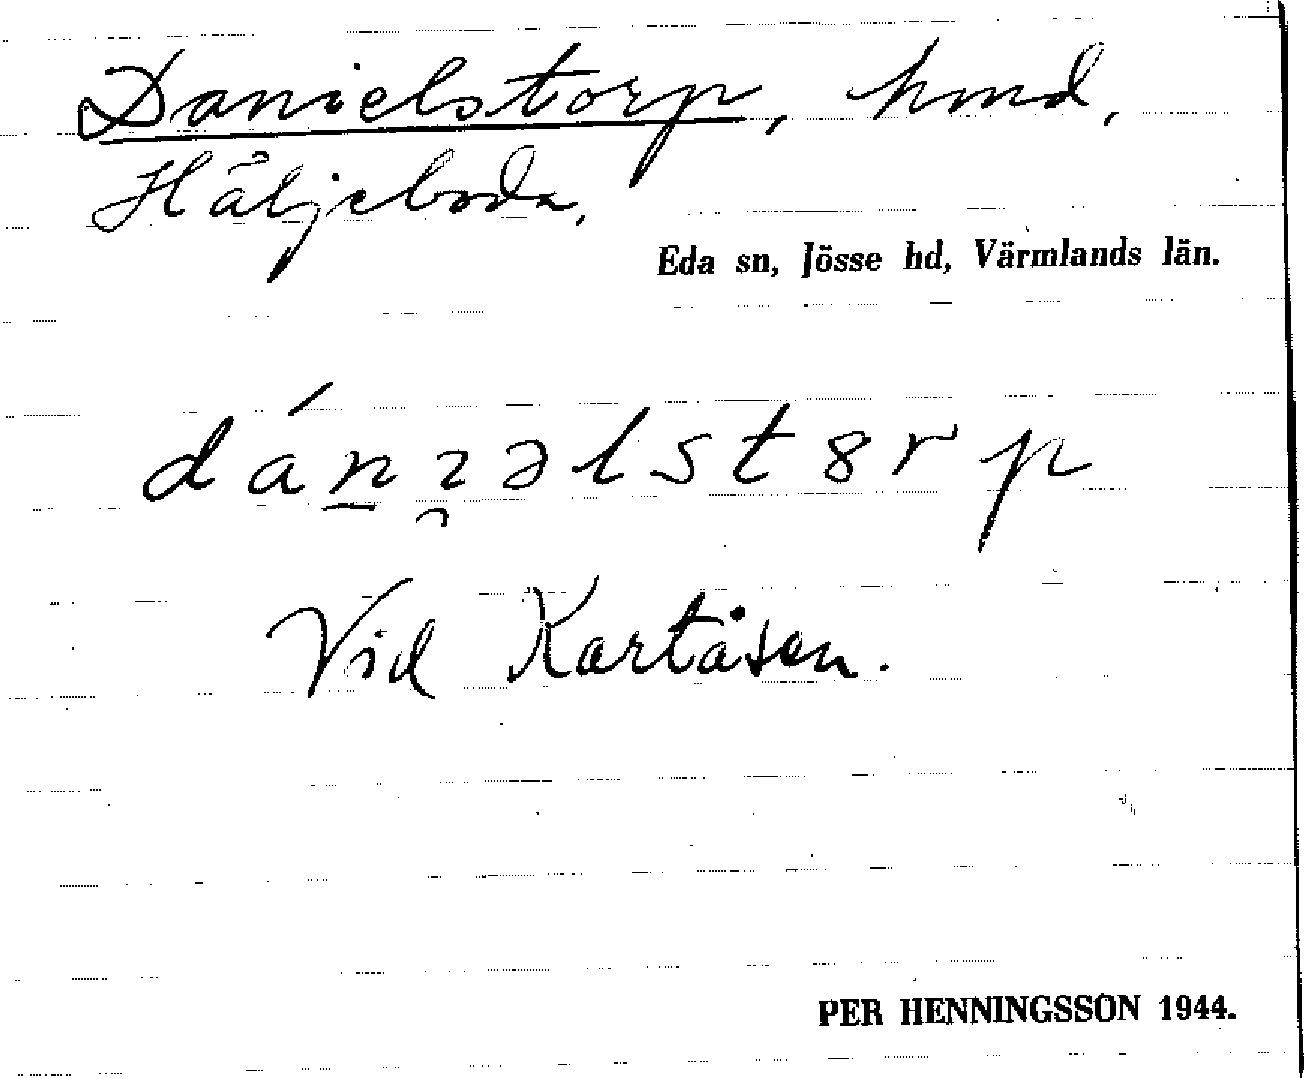 Danielstorp, hmd,
Häljeboda,
Eda sn, Jösse hd, Värmlands län.
dánɿ̯əlstȣrp
Vid Kartåsen.
PER HENNINGSSON 1944.